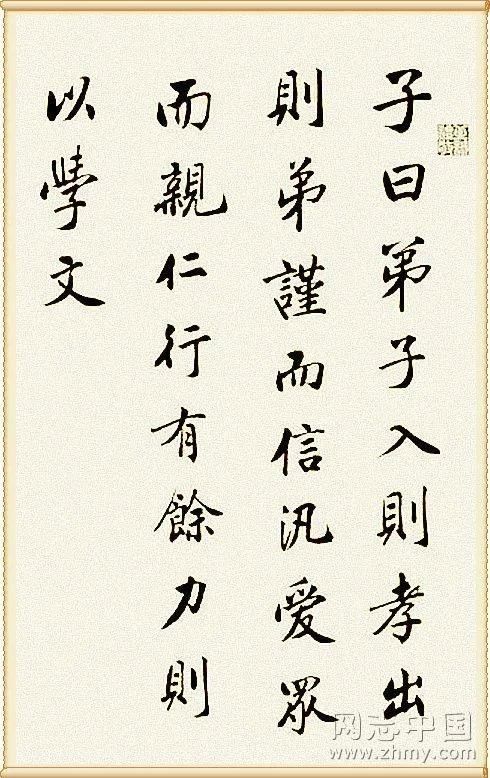 子曰弟子入則孝出
則弟謹而信汎愛眾
而親仁行有餘力則
以學文
网志中国
www.zhmy.com